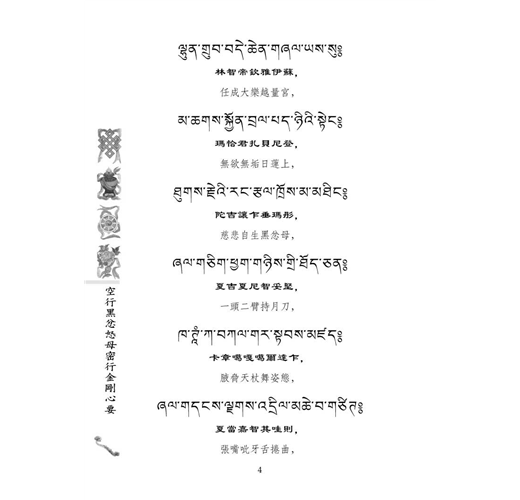 ལྷུན་གྲུབ་བདེ་ཆེན་གཞལ་ཡས་སུ༔
林智帝欽雅伊蘇，
任成大樂越量宮，
མ་ཆགས་སྐྱོན་བྲལ་པད་ཉིའི་སྟེང༔
瑪恰君扎貝尼登，
無欲無垢日蓮上，
ཐུགས་རྗེའི་རང་རྩལ་ཁྲོས་མ་མཐིང༔
陀吉讓乍垂瑪彤，
慈悲自生黑忿母，
ཞལ་གཅིག་ཕྱག་གཉིས་གྲི་ཐོད་ཅན༔
夏吉夏尼智妥堅，
一頭二臂持月刀，
ཁ་ཊྭཱཾ་ཀ་བཀལ་གར་སྟབས་མཛད༔
卡章噶嘎噶爾達乍，
腋脅天杖舞姿態，
ཞལ་གདངས་ལྗགས་འདྲིལ་མཆེ་བ་གཙིཊ༔
夏當嘉智其哇則，
張嘴呲牙舌捲曲，
空行黑忿怒母密行金剛心要
4